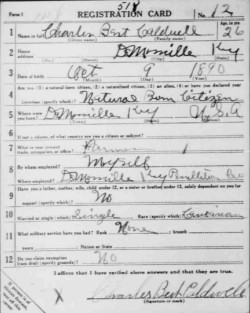 Form 1
518
REGISTRATION CARD
No. 12
1 Name in full Charles Bert Caldwell
Age, in yrs. 26
2 Home address DeMossville Ky
3 Date of birth Oct 9 1890
4 Are you (1) a natural-born citizen, (2) a naturalized citizen, (3) an alien, (4) or have you declared your intention (specify which)? Natural Born Citizen
5 Where were you born? DeMossville Ky U S A
6 If not a citizen, of what country are you a citizen or subject?
7 What is your present trade, occupation, or office? Farmer
8 By whom employed? Myself
Where employed? DeMossville Ky Pendleton Co
9 Have you a father, mother, wife, child under 12, or a sister or brother under 12, solely dependent on you for support (specify which)? No
10 Married or single (which)? Single Race (specify which)? Caucasian
11 What military service have you had? Rank None ; branch
years ; Nation or State
12 Do you claim exemption from draft (specify grounds)? No
I affirm that I have verified above answers and that they are true.
X Charles Bert Caldwell
(Signature or mark)